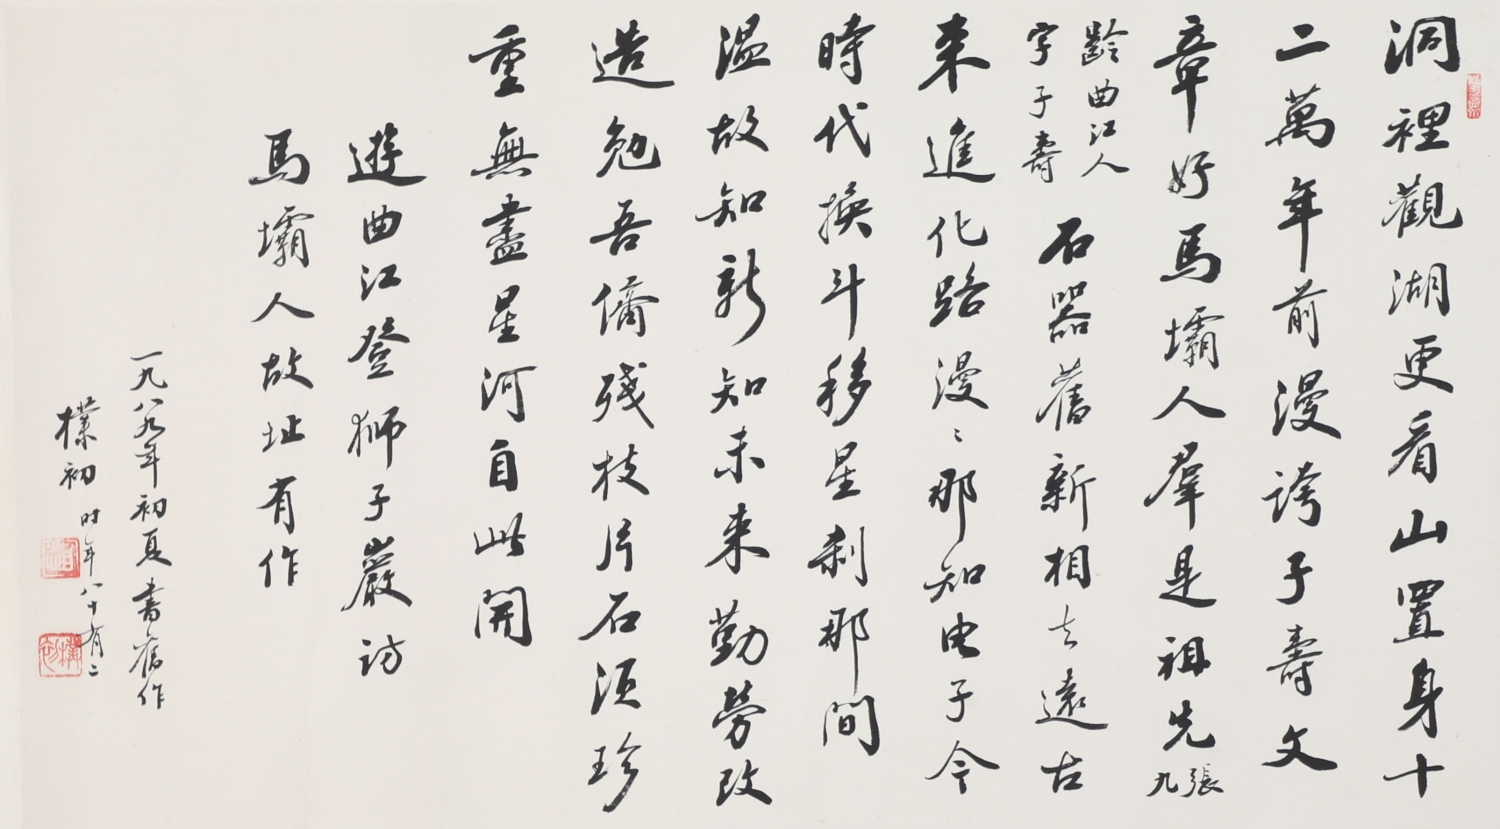 洞裡觀湖更看山置身十
二萬年前漫誇子壽文
章好馬壩人羣是祖先張九
齡曲江人
字子壽
石器舊新相去遠古
来進化路漫〻那知电子今
時代換斗移星刹那間
温故知新知未来勤勞改
造勉吾儕殘枝片石須珍
重無盡星河自此開
遊曲江登獅子巖訪
馬壩人故址有作
一九八九年初夏書舊作
樸初时年八十有二